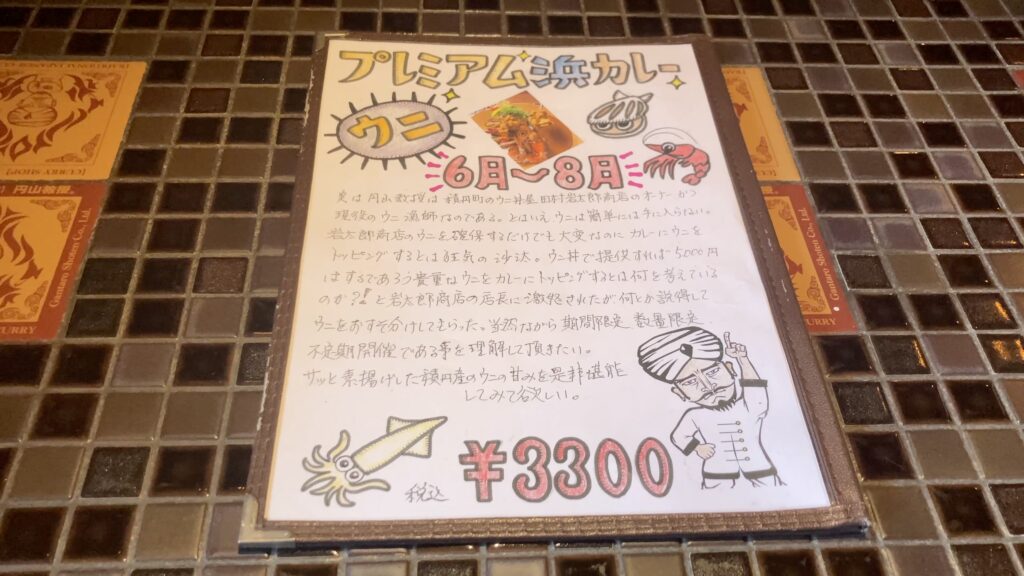 プレミアム浜カレー
ウニ
6月～8月
実は円山教授は積丹町のウニ丼屋田村岩太郎商店のオーナーかつ
現役のウニ漁師なのである。とはいえウニは簡単には手に入らない。
岩太郎商店のウニを確保するだけでも大変なのにカレーにウニを
トッピングするとは狂気の沙汰。ウニ丼で提供すれば5000円
はするであろう貴重なウニをカレーにトッピングするとは何を考えている
のか?!と岩太郎商店の店長に激怒されたが何とか説得して
ウニをおすそ分けしてもらった。当然ながら期間限定 数量限定
不定期開催である事を理解して頂きたい。
サッと素揚げした積丹産のウニの甘みを是非堪能
してみて欲しい。
税込 ¥3300
(CURRY SHOP)
円山教授。
Gantaro Shoten Co., Ltd
CURRY
Gantaro Shoten Co., Ltd